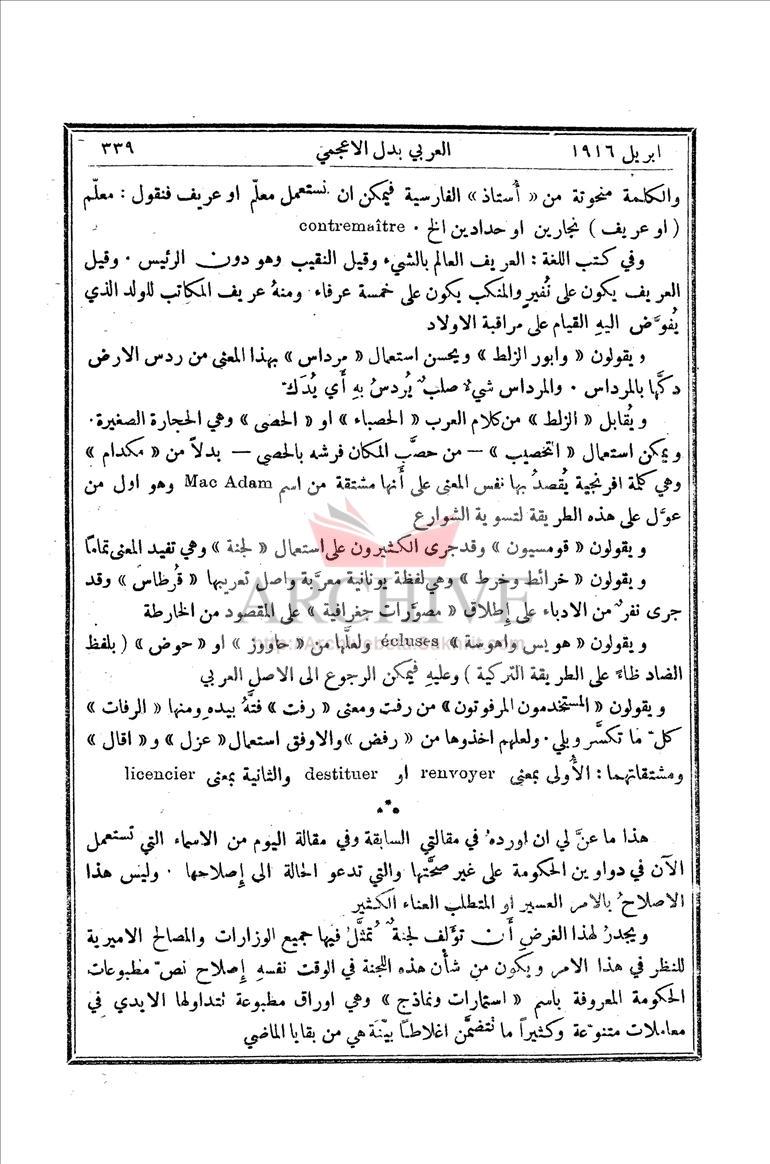 ابريل ١٩١٦ العربي بدل الاعجمي ٣٣٩
والكلمة منحوتة من « أُستاذ » الفارسية فيمكن ان نستعمل معلّم او عريف فنقول : معلّم
( او عريف ) نجارين او حدادين الخ ٠ contremaître
وفي كتب اللغة : العريف العالم بالشيء وقيل النقيب وهو دون الرئيس ٠ وقيل
العريف يكون على نُفيرٍ والمنكب يكون على خمسة عرفاء ومنهُ عريف المكاتب للولد الذي
يُفوَّض اليهِ القيام على مراقبة الاولاد
ويقولون « وابور الزلط » ويحسن استعمال « مرداس » بهذا المعنى من ردس الارض
دكَّها بالمرداس ٠ والمرداس شيءٌ صلبٌ يُردسُ بهِ أَي يُدَكّ
ويُقابل « الزلط » من كلام العرب « الحصباء » او « الحصى » وهي الحجارة الصغيرة٠
ويمكن استعمال « التحصيب » — من حصَّب المكان فرشه بالحصى — بدلاً من « مكدام »
وهي كلمة افرنجية يُقصدُ بها نفس المعنى على أَنها مشتقة من اسم Mac Adam وهو اول من
عوَّل على هذه الطريقة لتسوية الشوارع
ويقولون « قومسيون » وقد جرى الكثيرون على استعمال « لجنة » وهي تفيد المعنى تماماً
ARCHIVE
ويقولون « خرائط وخرط » وهي لفظة يونانية معرَّبة واصل تعريبها « قُرطاس » وقد
جرى نفرٌ من الادباء على إطلاق « مصوَّرات جغرافية » على المقصود من الخارطة
ويقولون « هويس واهوسة » écluses ولعلَّها من « حاووز » او « حوض » ( بلفظ
الضاد ظاءً على الطريقة التركية ) وعليهِ فيمكن الرجوع الى الاصل العربي
ويقولون « المستخدمون المرفوتون » من رفت ومعنى « رفت » فتَّهُ بيده ومنها « الرفات »
كلّ ما تكسَّر وبلي٠ ولعلهم اخذوها من « رفض » والاوفق استعمال « عزل » و « اقال »
ومشتقاتهما : الأُولى بمعنى renvoyer او destituer والثانية بمعنى licencier
***
هذا ما عنَّ لي ان اوردهُ في مقالتي السابقة وفي مقالة اليوم من الاسماء التي تستعمل
الآن في دواوين الحكومة على غير صحَّتها والتي تدعو الحالة الى إصلاحها ٠ وليس هذا
الاصلاحُ بالامر العسير او المتطلب العناء الكثير
ويجدرُ لهذا الغرض أَن تؤلف لجنةٌ تُمثَّلُ فيها جميع الوزارات والمصالح الاميرية
للنظر في هذا الامر ويكون من شأن هذه اللجنة في الوقت نفسهِ إصلاح نصّ مطبوعات
الحكومة المعروفة باسم « استمارات ونماذج » وهي اوراق مطبوعة تتداولها الايدي في
معاملات متنوّعة وكثيراً ما تتضمَّن اغلاطاً بيّنَة هي من بقايا الماضي